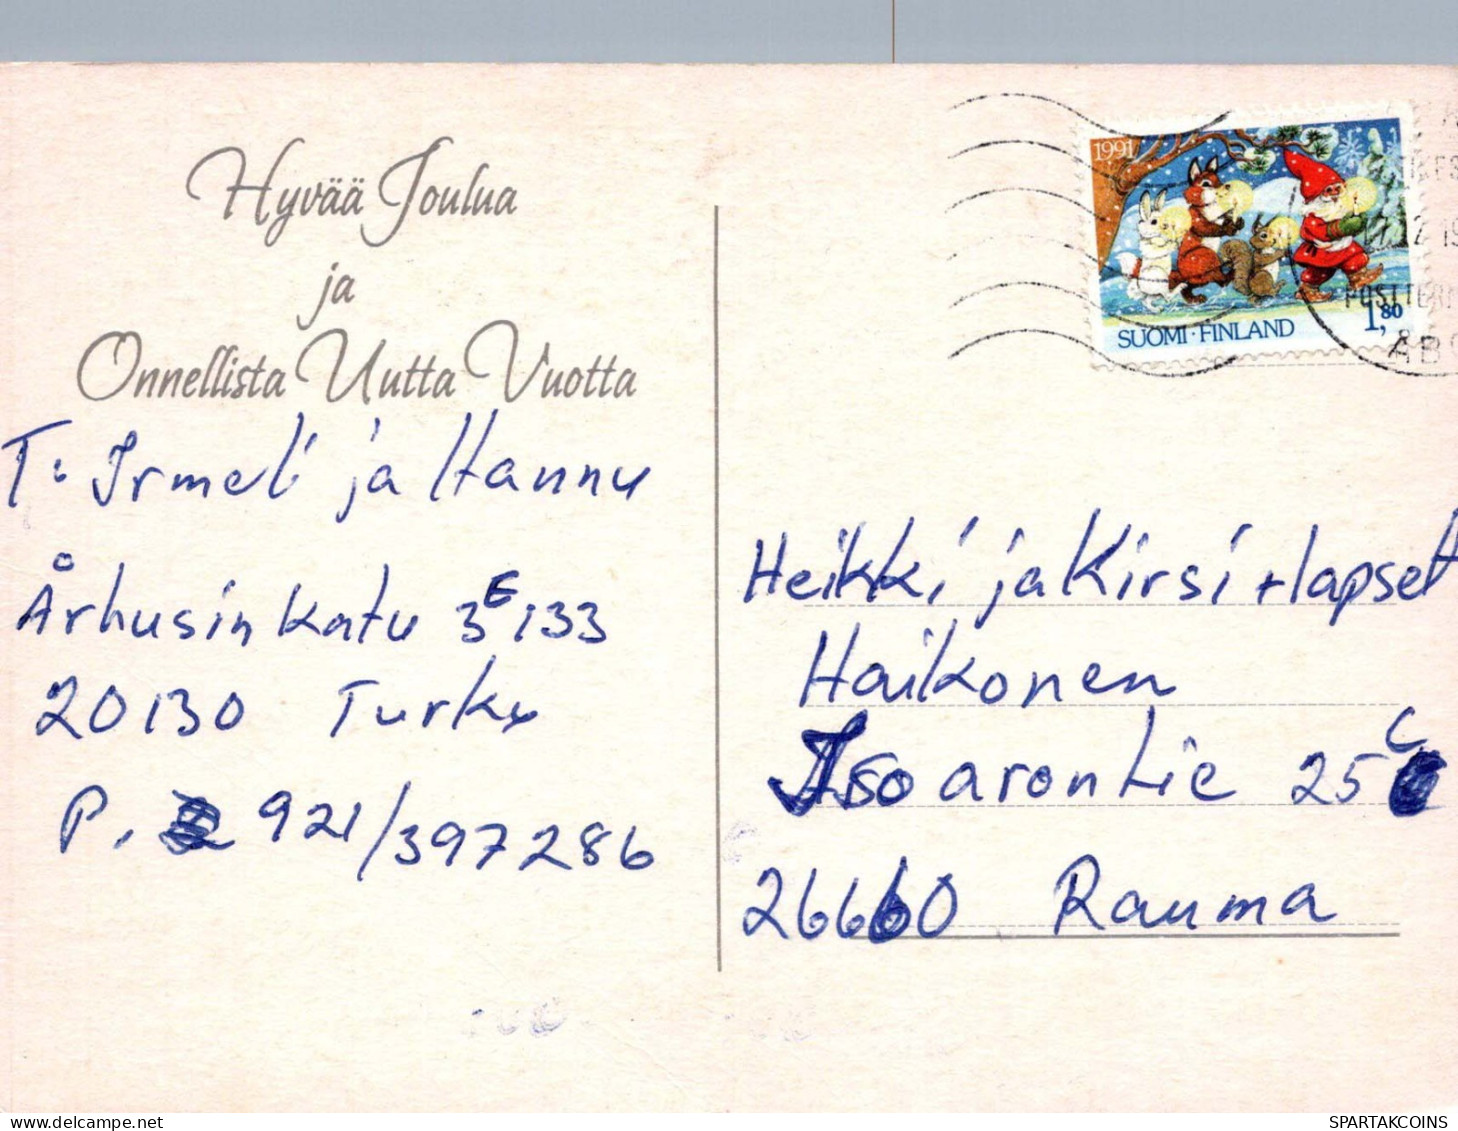 Hyvää Joulua
ja
Onnellista Uutta Vuotta
T: Irmeli ja Hannu
Århusinkatu 3 E 133
20130 Turku
P. 921/397286
1991
SUOMI·FINLAND 1,80
ÅBO
Heikki ja Kirsi + lapset
Haikonen
Iso arontie 25 C
26660 Rauma
SPARTAKCOINS